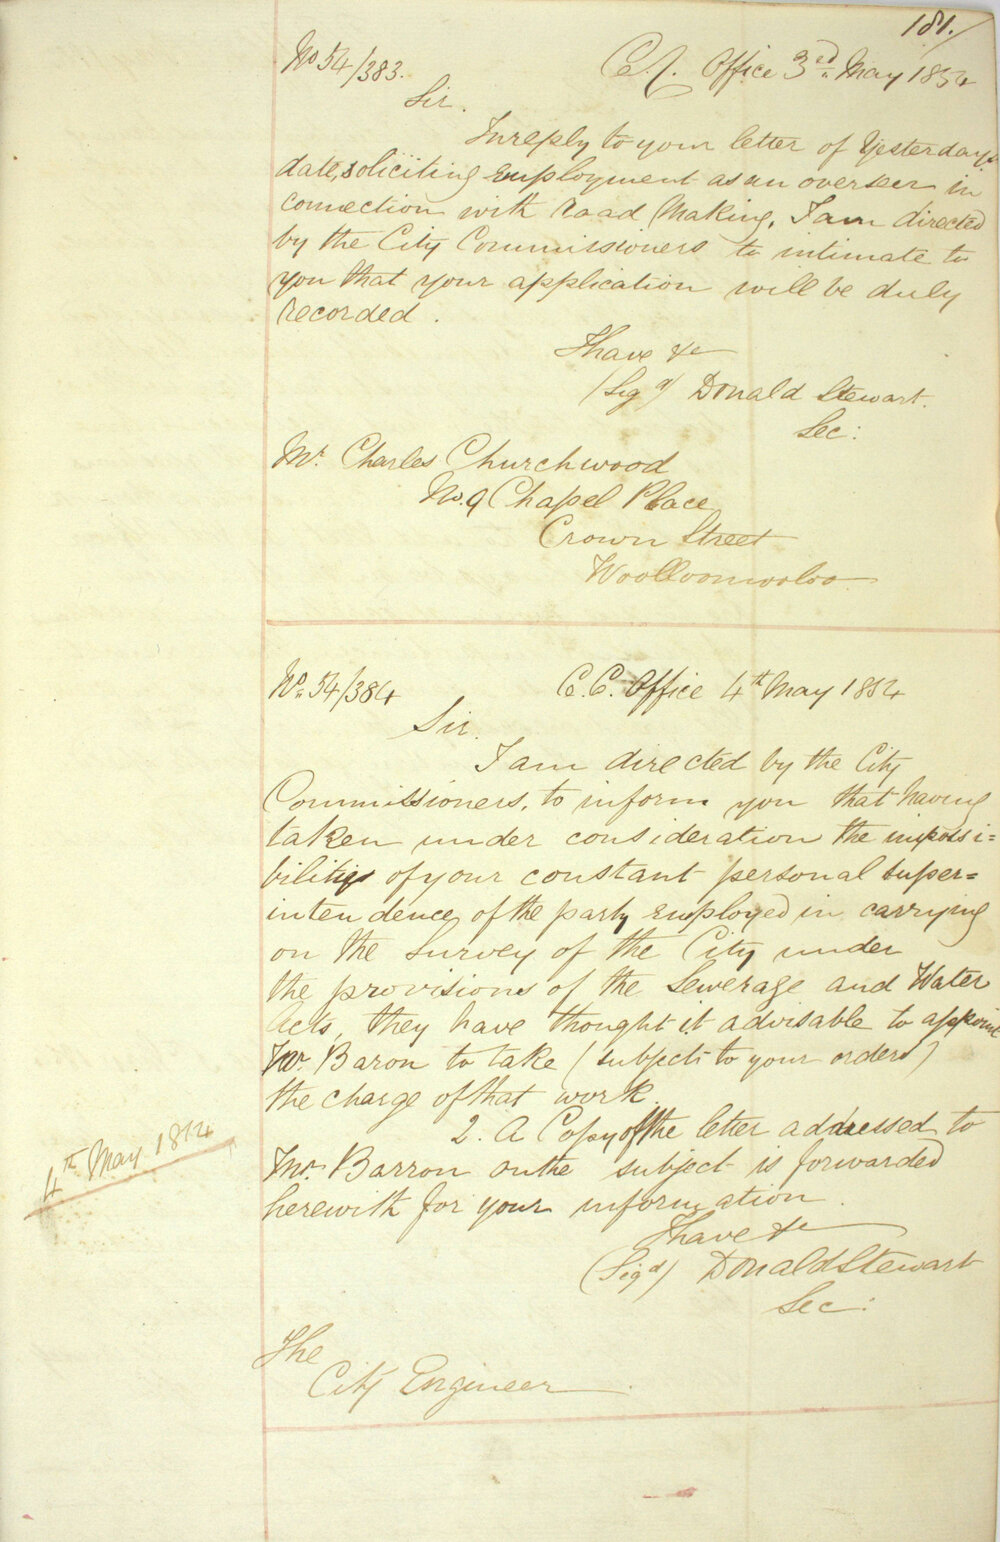 181.
No 54/383.
C.C. Office 3rd May 1854
Sir.
In reply to your letter of Yesterday's
date, soliciting employment as an overseer in
connection with Road Making, I am directed
by the City Commissioners to intimate to
you that your application will be duly
recorded.
I have &c
(Sigd) Donald Stewart.
Sec:
Mr. Charles Churchwood
No. 9 Chapel Place
Crown Street
Woolloomooloo
No. 54/384
C.C. Office 4th May 1854
Sir.
I am directed by the City
Commissioners, to inform you that having
taken under consideration the impossi=
bility of your constant personal super=
intendence, of the party employed in carrying
on the Survey of the City under
the provisions of the Sewerage and Water
Acts, they have thought it advisable to appoint
Mr. Baron to take (subject to your orders)
the charge of that work.
2. A Copy of the letter addressed to
4th May 1854
Mr. Barron on the subject is forwarded
herewith for your information.
I have &c
(Sigd) Donald Stewart
Sec:
The
City Engineer